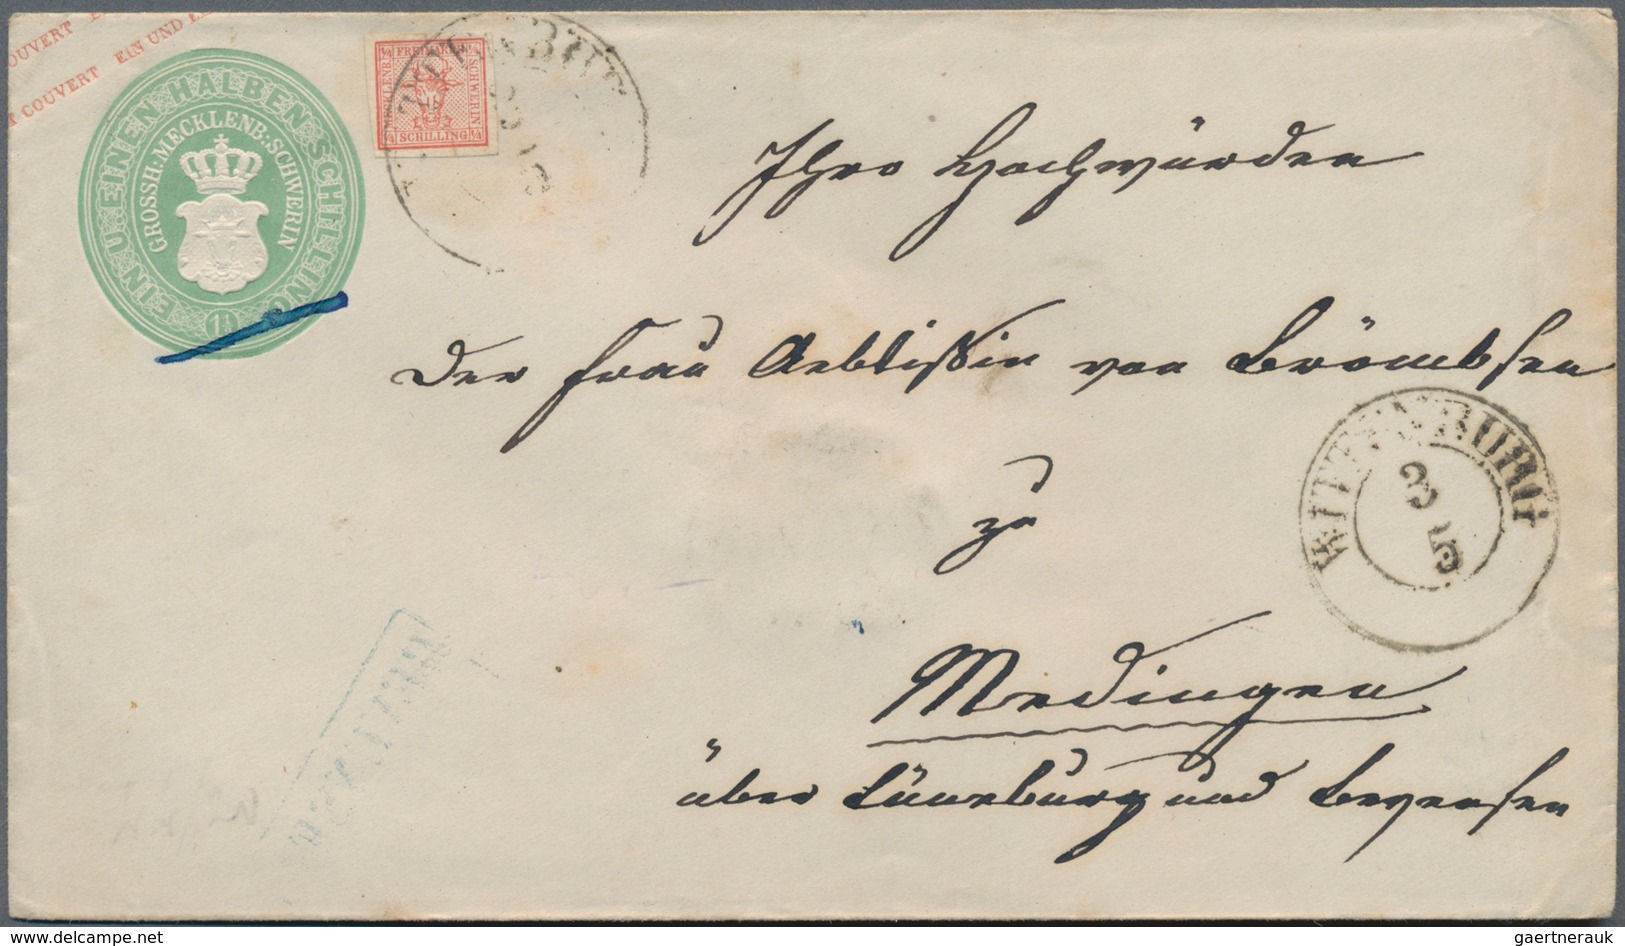 OUVERT
T COUVERT EIN UND E
EIN U. EINEN HALBEN SCHILLING
GROSSH: MECKLENB: SCHWERIN
1½
¼ FREIMARKE ¼
MECKLENB.
SCHWERIN
¼ SCHILLING ¼
Ihro Hochwürden
der Frau Aebtißin von Brömbsen
zu
Medingen
über Lüneburg und Bevensen
WITTENBURG
3
5
gaertnerauk